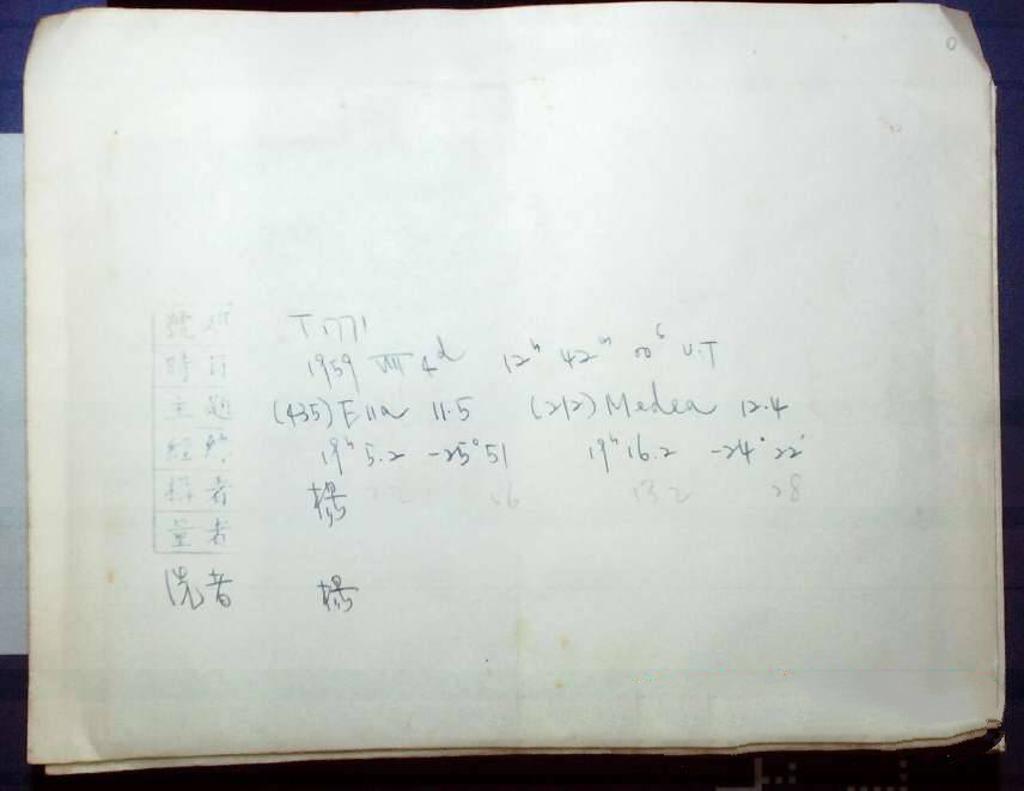 0
號
T 1771
時
1959 VIII 4ᵈ 12ʰ 42ᵐ 00ˢ U.T
主題
(435) Ella 11.5 (212) Medea 12.4
經
19ʰ 5.2 -25° 51 19ʰ 16.2 -24° 22'
者 楊
量者
洗者 楊